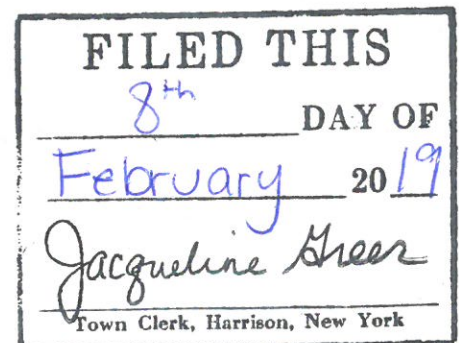 FILED THIS
8th
DAY OF
February 2019
Jacqueline Greer
Town Clerk, Harrison, New York